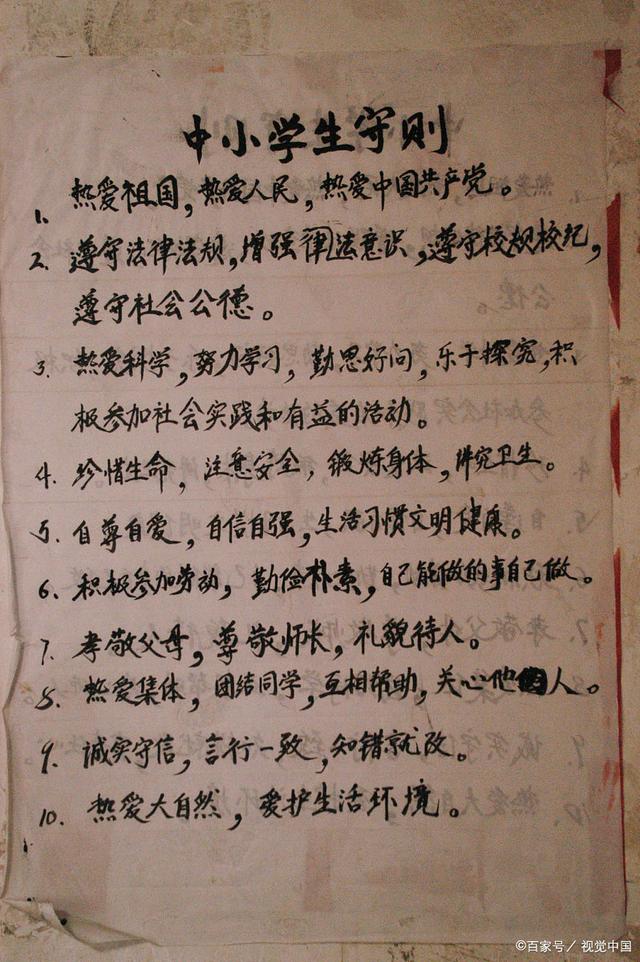 中小学生守则
1. 热爱祖国,热爱人民,热爱中国共产党。
2. 遵守法律法规,增强律法意识,遵守校规校纪,
遵守社会公德。
3. 热爱科学,努力学习,勤思好问,乐于探究,积
极参加社会实践和有益的活动。
4. 珍惜生命,注意安全,锻炼身体,讲究卫生。
5. 自尊自爱,自信自强,生活习惯文明健康。
6. 积极参加劳动,勤俭朴素,自己能做的事自己做。
7. 孝敬父母,尊敬师长,礼貌待人。
8. 热爱集体,团结同学,互相帮助,关心他人。
9. 诚实守信,言行一致,知错就改。
10. 热爱大自然,爱护生活环境。
©百家号/视觉中国